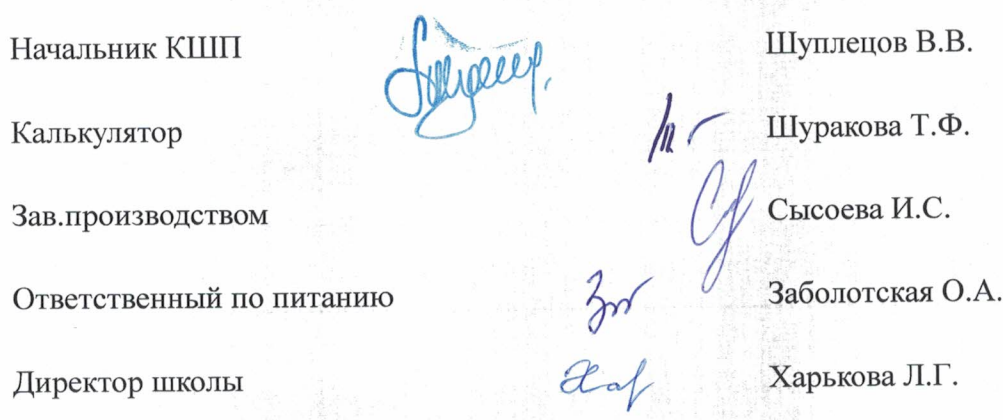 Начальник КШП Шуплецов В.В.
Калькулятор Шуракова Т.Ф.
Зав.производством Сысоева И.С.
Ответственный по питанию Заболотская О.А.
Директор школы Харькова Л.Г.